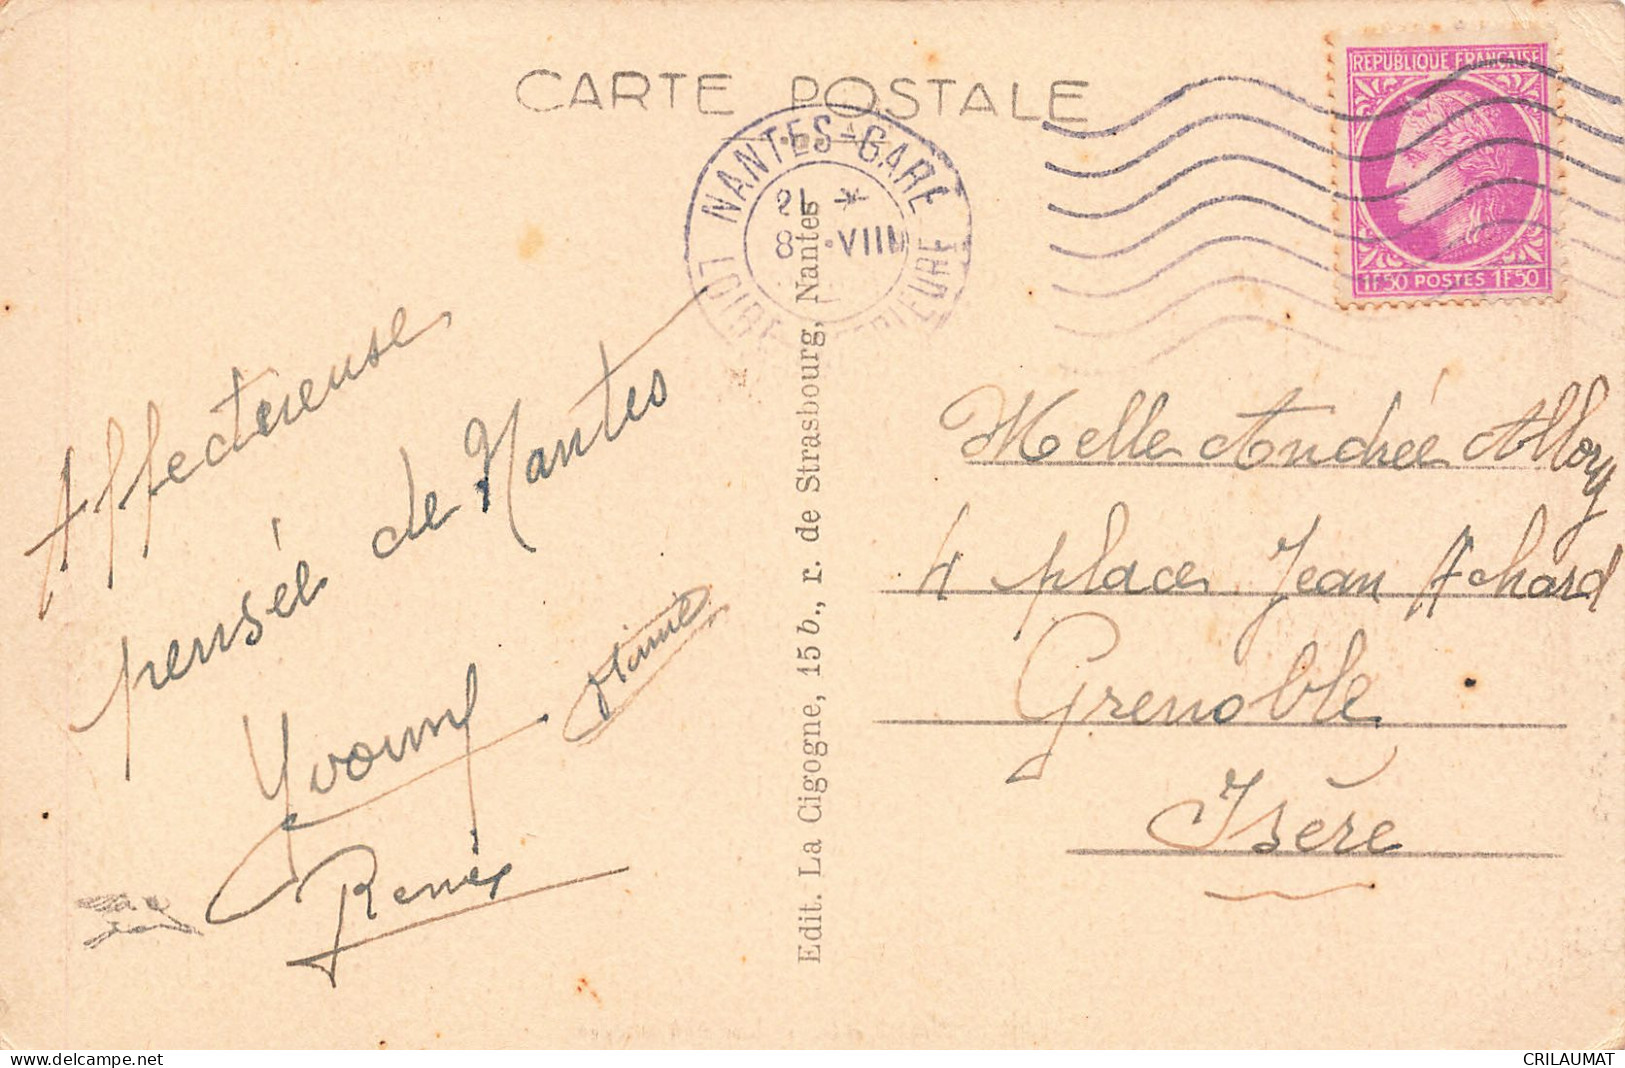 CARTE POSTALE
REPUBLIQUE FRANÇAISE
1F50 POSTES 1F50
NANTES-GARE
21 *
8 .VIII
LOIRE
Affectueuse
pensée de Nantes
Yvonne
René
Edit. La Cigogne, 15 b., r. de Strasbourg, Nantes
Melle Andrée Allory
4 place Jean Achard
Grenoble
Isère
CRILAUMAT
delcampe.net